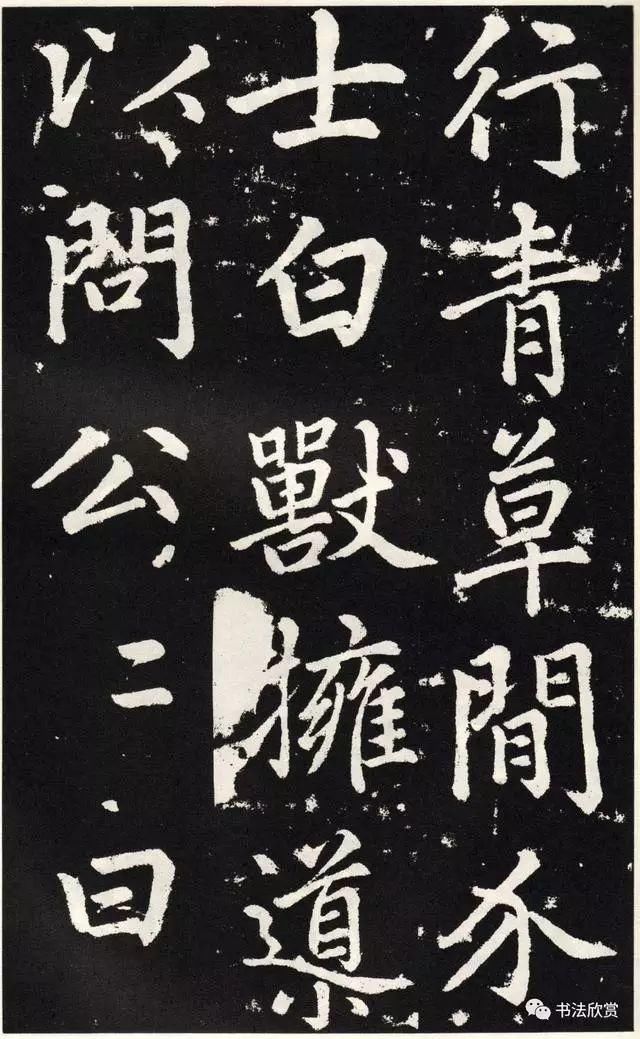 行青草間介
士白獸擁導
以問公二曰
书法欣赏